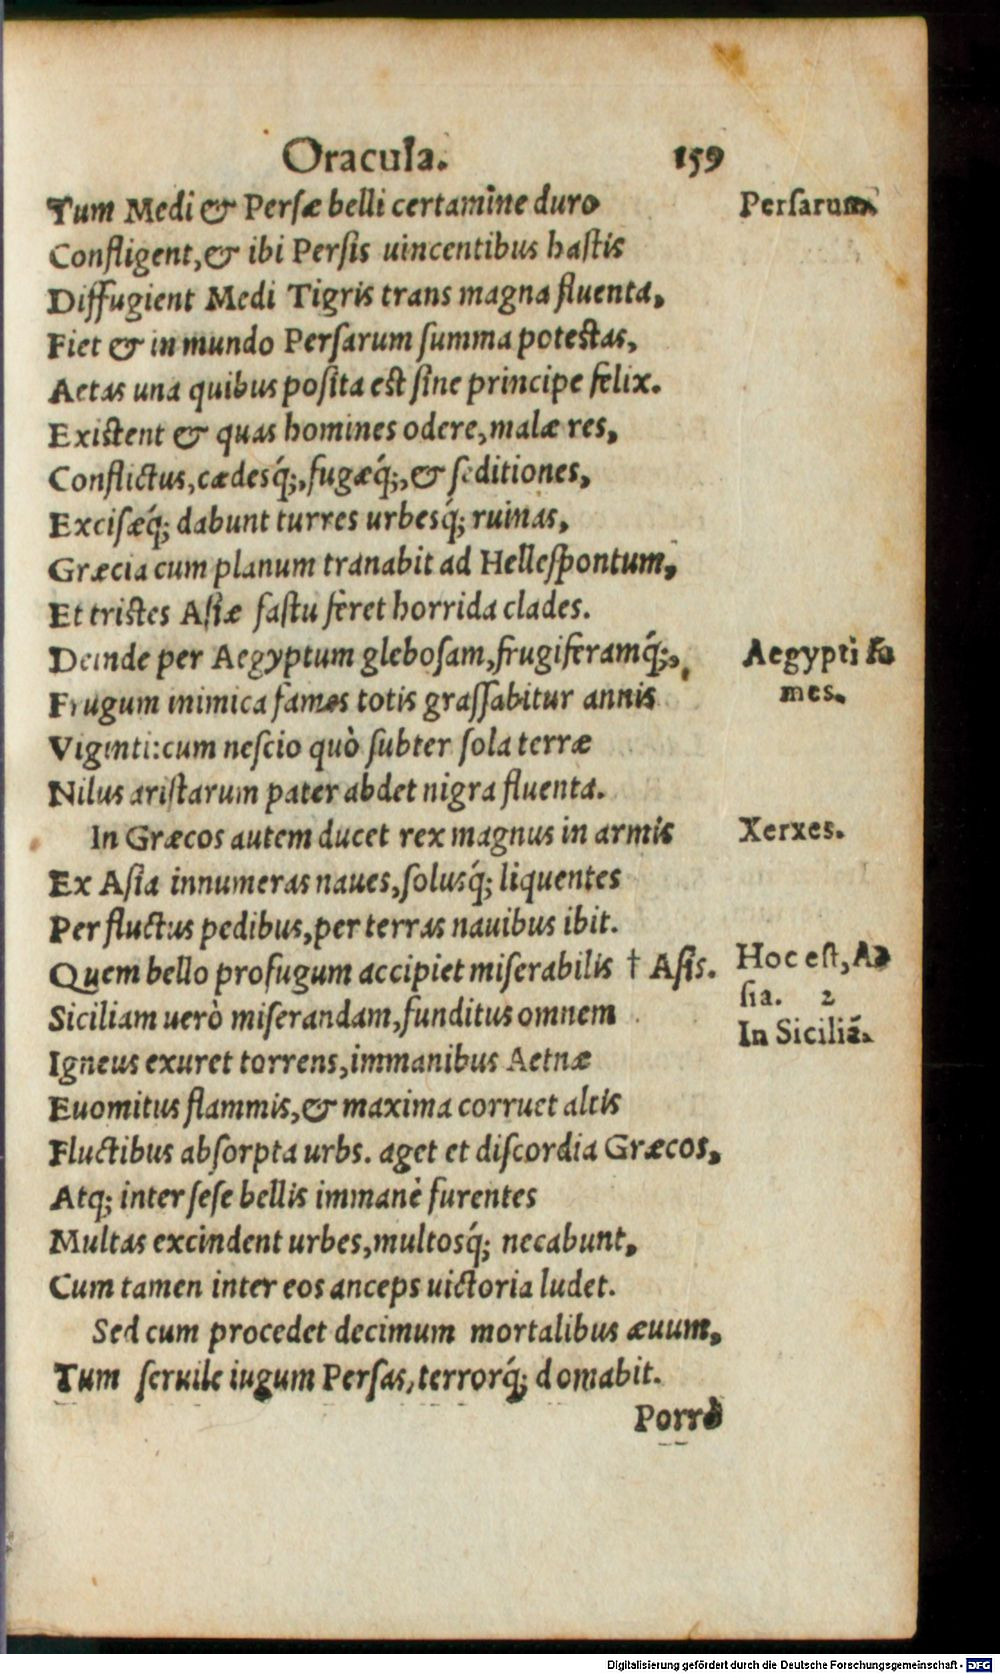 Oracula. 159
Tum Medi & Persæ belli certamine duro
Persarum
Confligent, & ibi Persis uincentibus hastis
Diffugient Medi Tigris trans magna fluenta,
Fiet & in mundo Persarum summa potestas,
Aetas una quibus posita est sine principe felix.
Existent & quas homines odere, malæ res,
Conflictus, cædesq́;, fugæq́;, & seditiones,
Excisæq́; dabunt turres urbesq́; ruinas,
Græcia cum planum tranabit ad Hellespontum,
Et tristes Asiæ fastu feret horrida clades.
Deinde per Aegyptum glebosam, frugiferamq́;,
Aegypti fa
Frugum inimica fames totis grassabitur annis
mes.
Viginti: cum nescio quò subter sola terræ
Nilus aristarum pater abdet nigra fluenta.
In Græcos autem ducet rex magnus in armis
Xerxes.
Ex Asia innumeras naues, solusq́; liquentes
Per fluctus pedibus, per terras nauibus ibit.
Quem bello profugum accipiet miserabilis † Asis.
Hoc est, A-
sia. 2
Siciliam uerò miserandam, funditus omnem
In Siciliā.
Igneus exuret torrens, immanibus Aetnæ
Euomitus flammis, & maxima corruet altis
Fluctibus absorpta urbs. aget et discordia Græcos,
Atq; inter sese bellis immanè furentes
Multas excindent urbes, multosq́; necabunt,
Cum tamen inter eos anceps uictoria ludet.
Sed cum procedet decimum mortalibus æuum,
Tum seruile iugum Persas, terrorq́; domabit.
Porrò
Digitalisierung gefördert durch die Deutsche Forschungsgemeinschaft - DFG